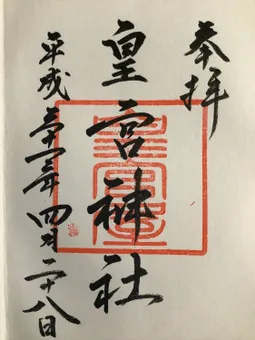 奉拝
皇宮神社
平成三十一年四月二十八日